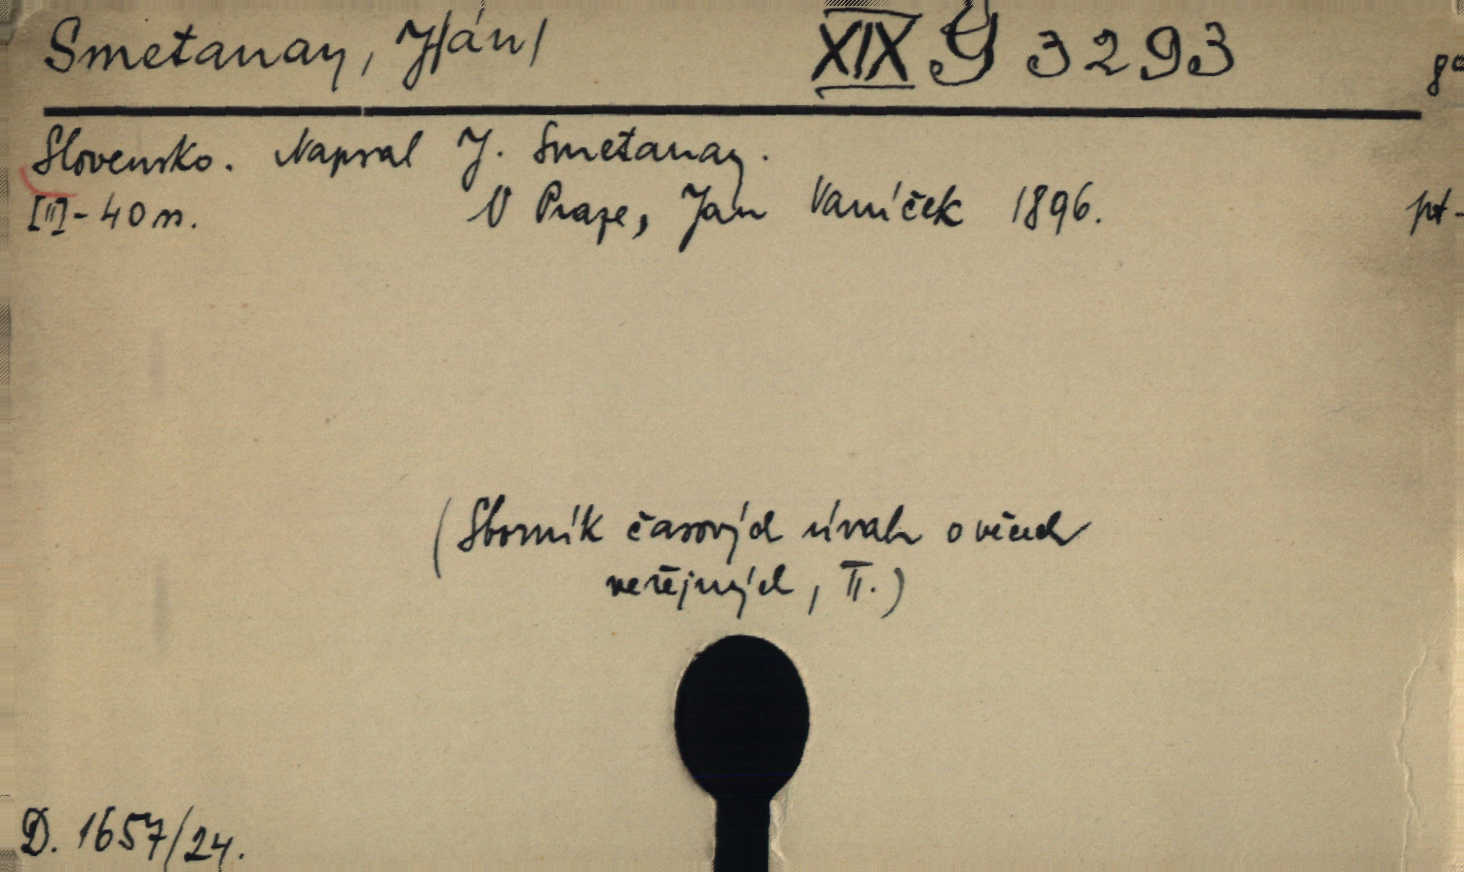 Smetanay, J/án/ XIX Y 3293 8°
Slovensko. Napsal J. Smetanay.
[II]-40 s. V Praze, Jan Vaníček 1896. pt-
(Sborník časových úvah o věcech
veřejných, II.)
D. 1657/24.